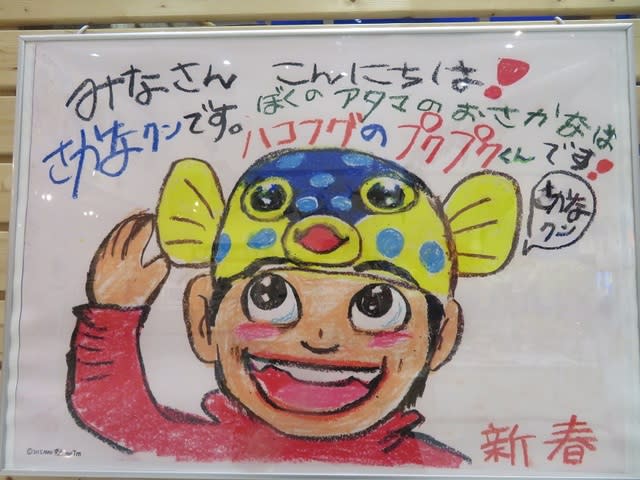 みなさん　こんにちは！
さかなクンです。
ぼくのアタマのおさかなは
ハコフグのプクプクくんです！
さかな
クン
新春